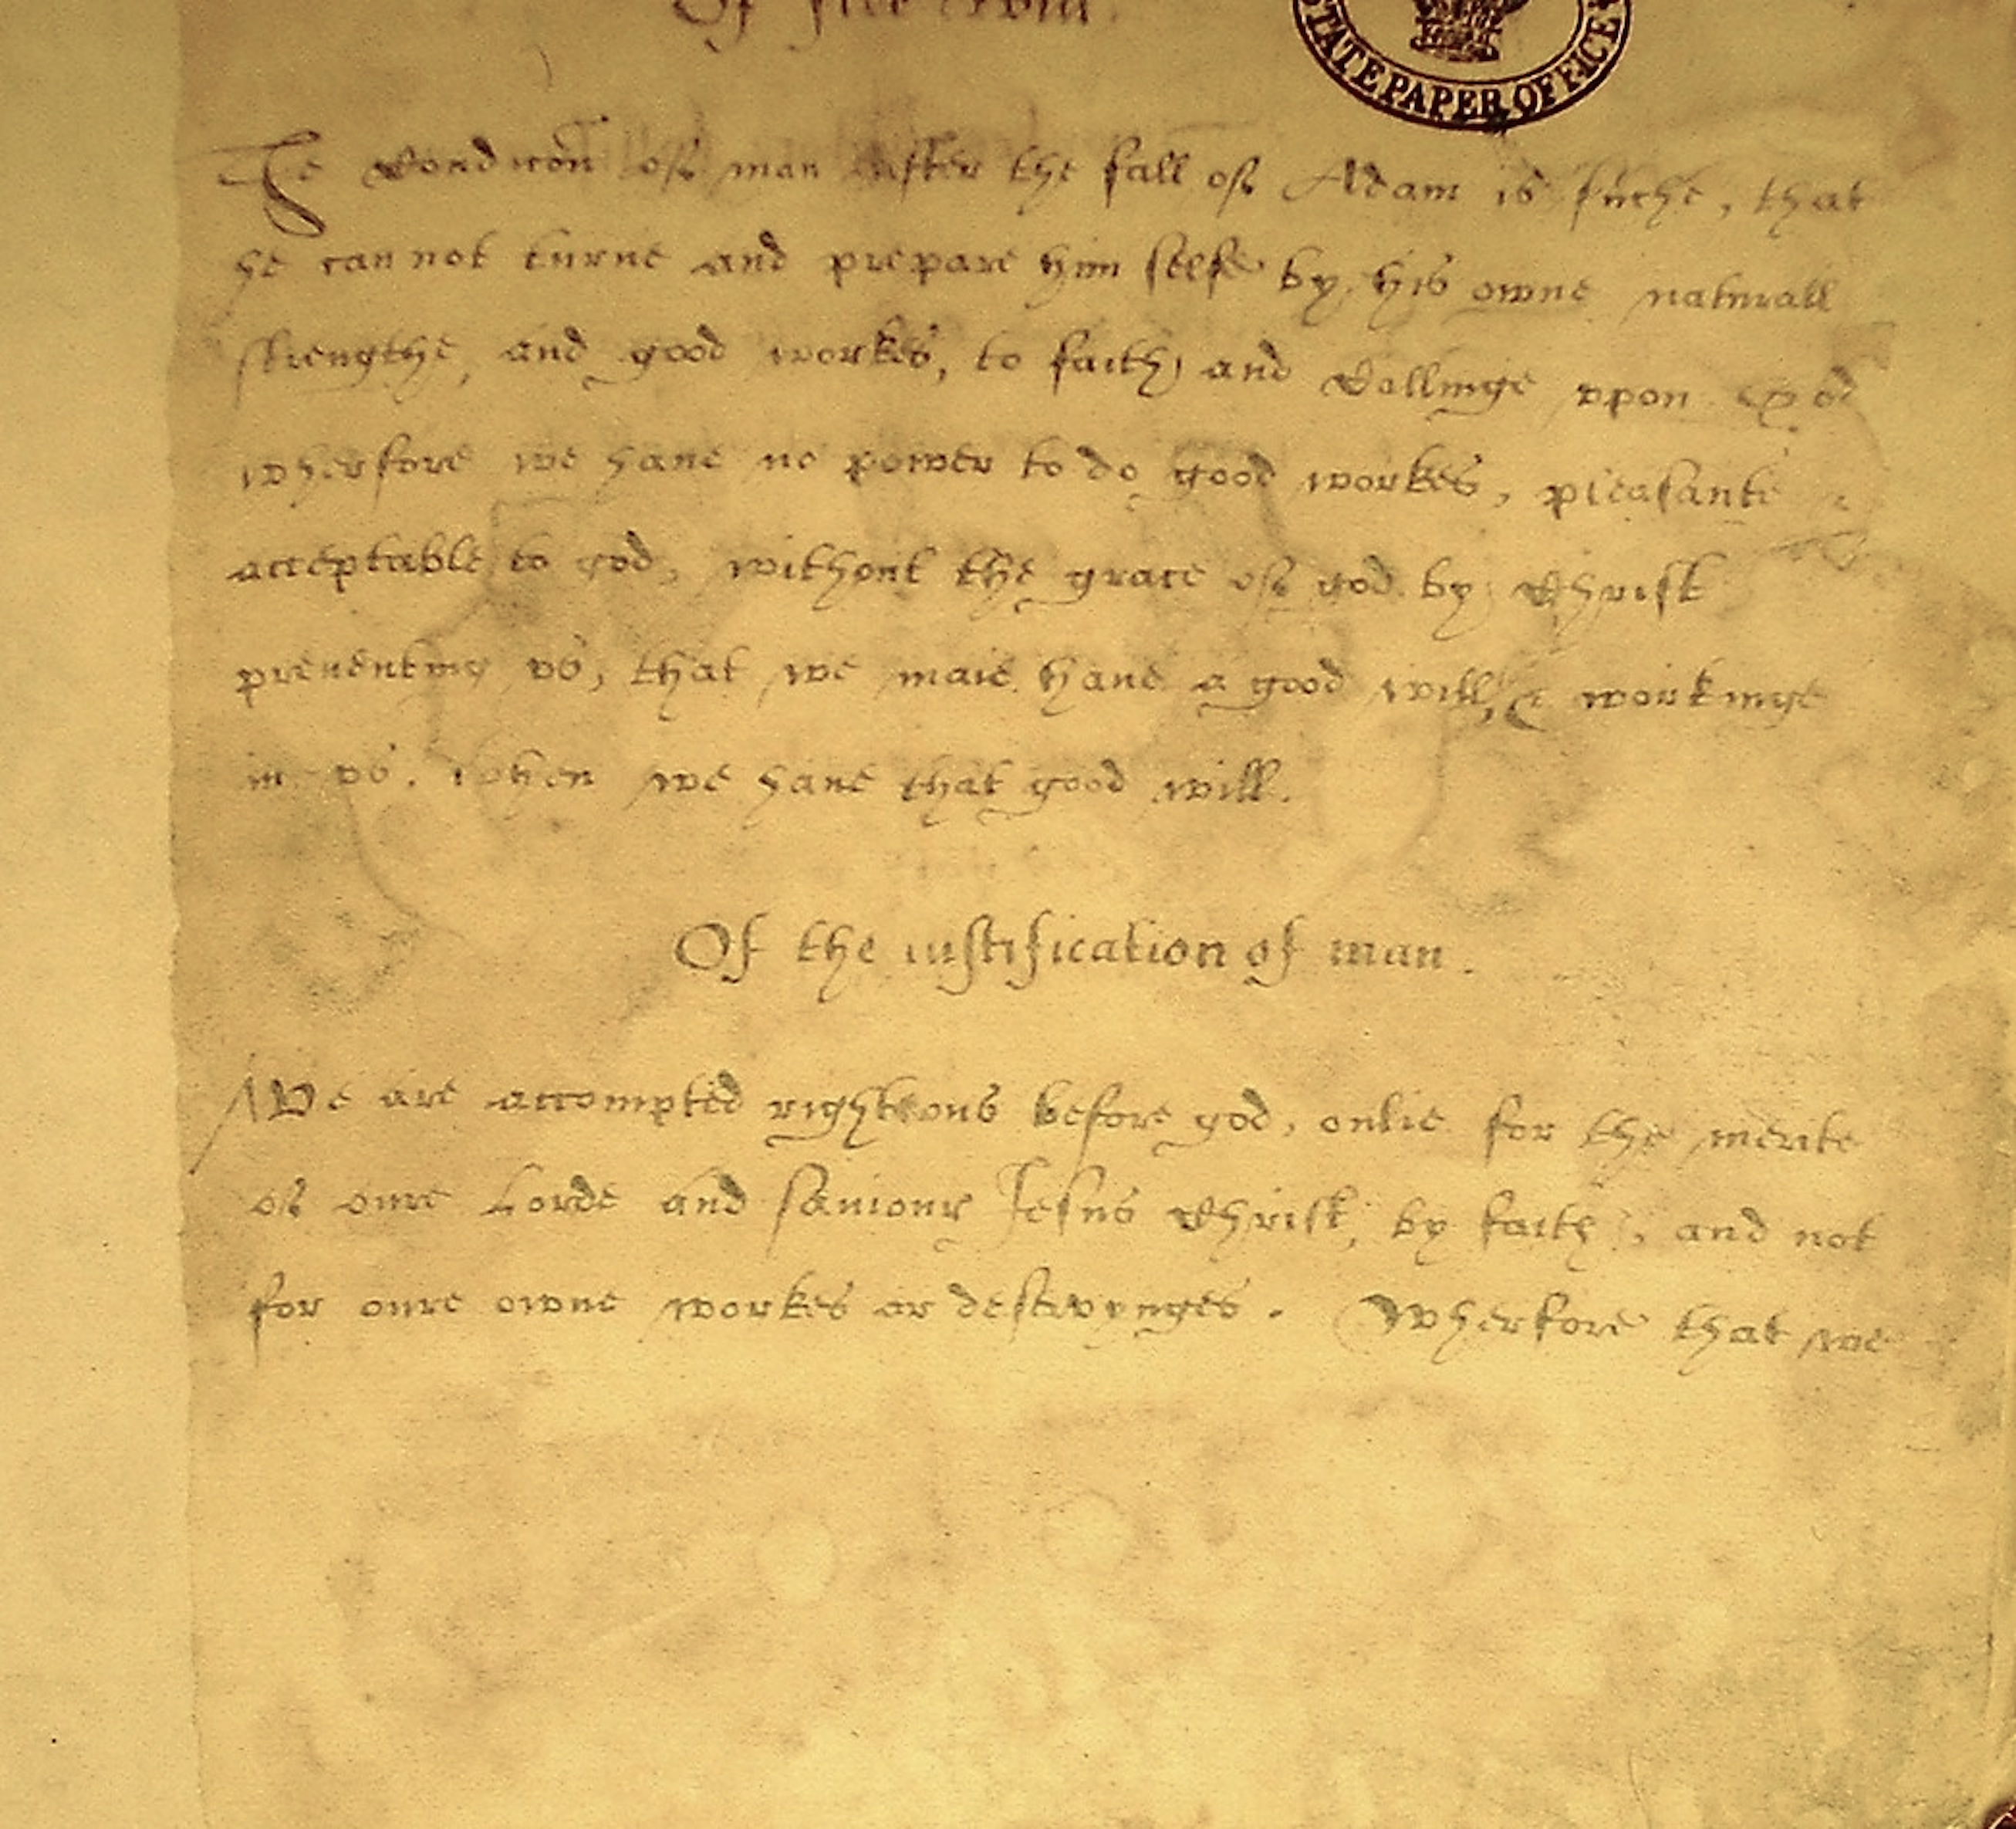 Of free will.
STATE PAPER OFFICE
The Condicōn of man after the fall of Adam is suche, that
he can not turne and prepare him selfe by his owne naturall
strengthe, and good workes, to faith, and Callinge vpon God
wherfore we haue no power to do good workes, pleasante &
acceptable to god, without the grace of god by Christ
preuenting vs, that we maie haue a good will, & workinge
in vs. when we haue that good will.
Of the iustification of man.
We are accompted righteous before god, onlie for the merite
of oure Lorde and sauiour Jesus Christ, by faith, and not
for oure owne workes or deseruynges. Wherfore that we